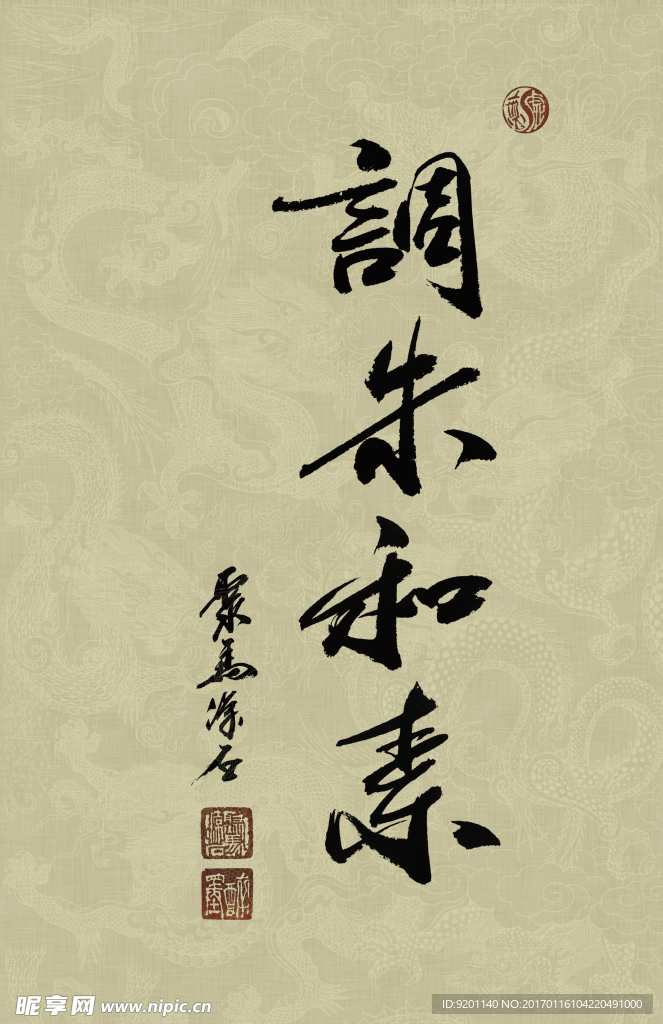 調朱和素
聚馬深石
昵享网 www.nipic.cn
ID:9201140 NO:20170116104220491000